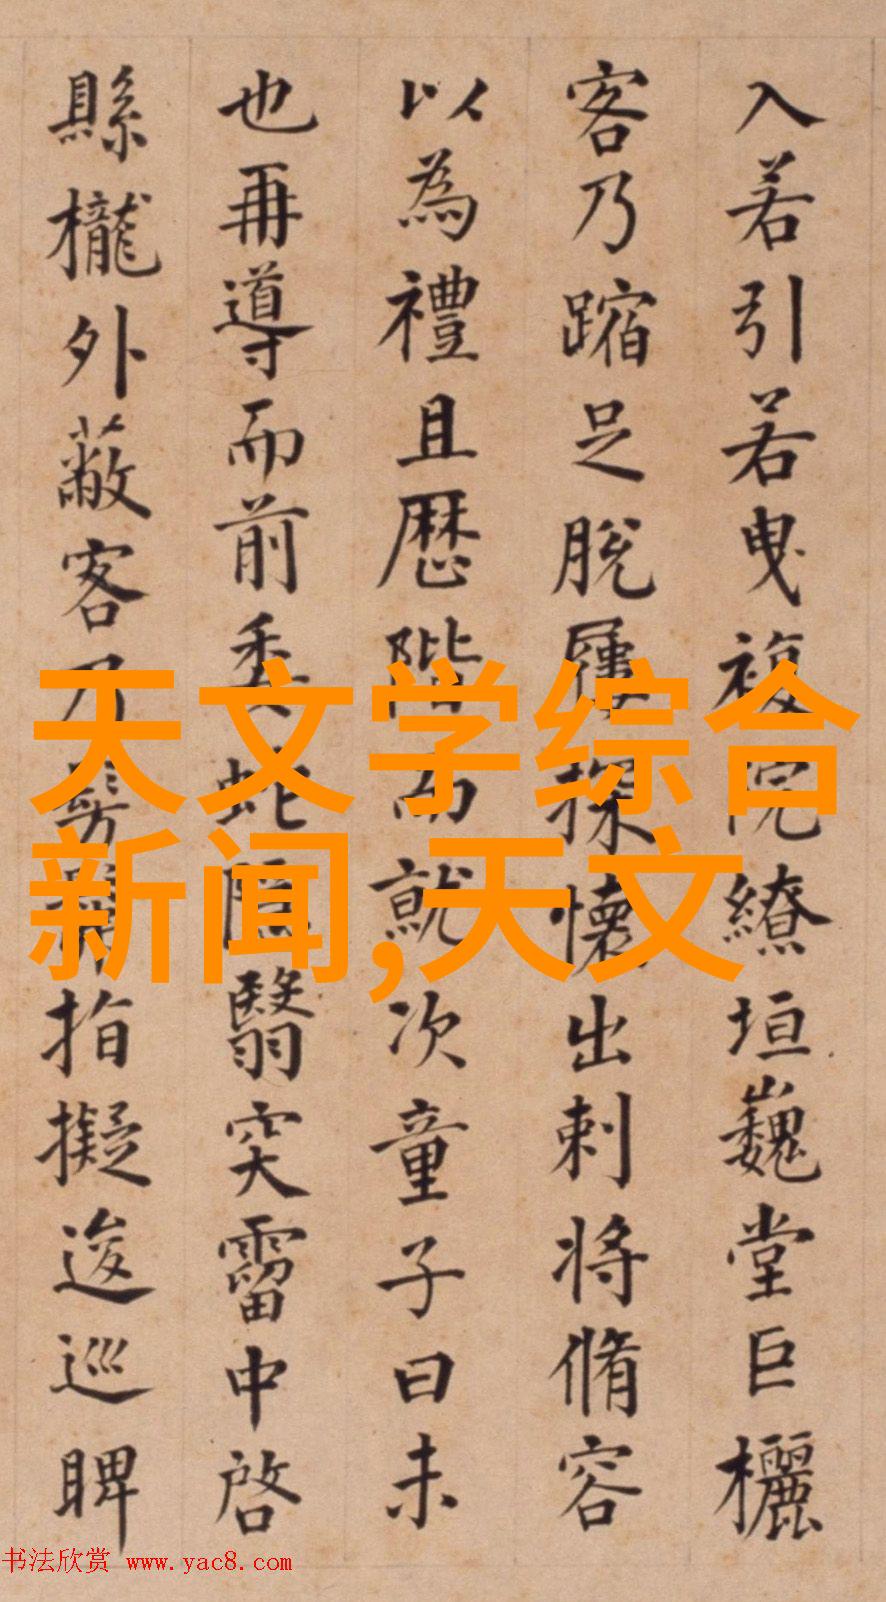 入若引若曳複院繚垣巍堂巨欐
客乃蹜足脫屨探懷出刺將脩容
以為禮且歷階而就次童子曰未
也再導而前委蛇隱翳穾霤中啓
縣櫳外蔽客乃指擬逡巡睥
天文学综合
新闻,天文
书法欣赏 www.yac8.com